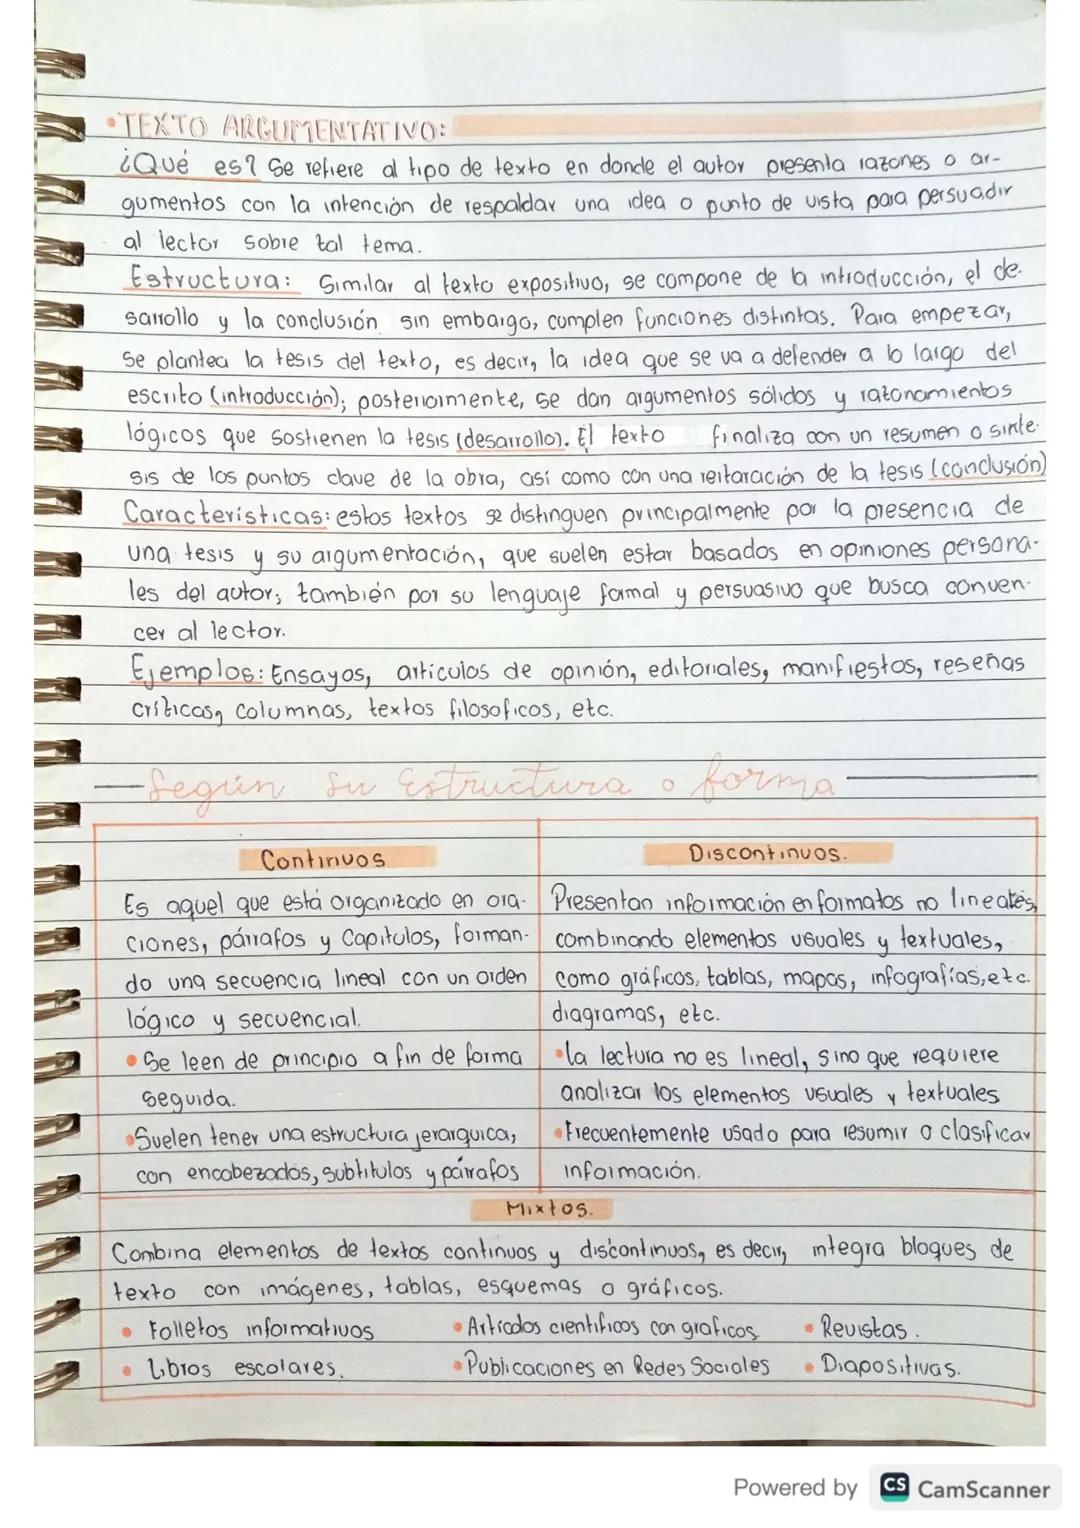 •TEXTO ARGUMENTATIVO:
¿Qué es? Se refiere al tipo de texto en donde el autor presenta razones o ar-
gumentos con la intención de respaldar una idea o punto de vista para persuadir
al lector sobre tal tema.
Estructura: Similar al texto expositivo, se compone de la introducción, el de-
sarrollo y la conclusión sin embargo, cumplen funciones distintas. Para empezar,
se plantea la tesis del texto, es decir, la idea que se va a defender a lo largo del
escrito (introducción); posteriormente, se dan argumentos sólidos y razonamientos
lógicos que sostienen la tesis (desarrollo). El texto finaliza con un resumen o sínte-
sis de los puntos clave de la obra, así como con una reitaración de la tesis (conclusión)
Características: estos textos se distinguen principalmente por la presencia de
una tesis y su argumentación, que suelen estar basados en opiniones persona-
les del autor; también por su lenguaje formal y persuasivo que busca conven-
cer al lector.
Ejemplos: Ensayos, artículos de opinión, editoriales, manifiestos, reseñas
críticas, columnas, textos filosoficos, etc.
—Según su Estructura o forma—
Continuos
Es aquel que está organizado en ora-
ciones, párrafos y Capitulos, forman-
do una secuencia lineal con un orden
lógico y secuencial.
•Se leen de principio a fin de forma
seguida.
•Suelen tener una estructura jerarquica,
con encabezados, subtitulos y párrafos
Discontinuos.
Presentan información en formatos no lineales,
combinando elementos visuales y textuales,
como gráficos, tablas, mapas, infografías, etc.
diagramas, etc.
•la lectura no es lineal, sino que requiere
analizar los elementos visuales y textuales
•Frecuentemente usado para resumir o clasificar
información.
Mixtos.
Combina elementos de textos continuos y discontinuos, es decir, integra bloques de
texto con imágenes, tablas, esquemas o gráficos.
• Folletos informativos •Artículos cientificos con graficos • Revistas.
• Libros escolares. •Publicaciones en Redes Sociales • Diapositivas.
Powered by CS CamScanner